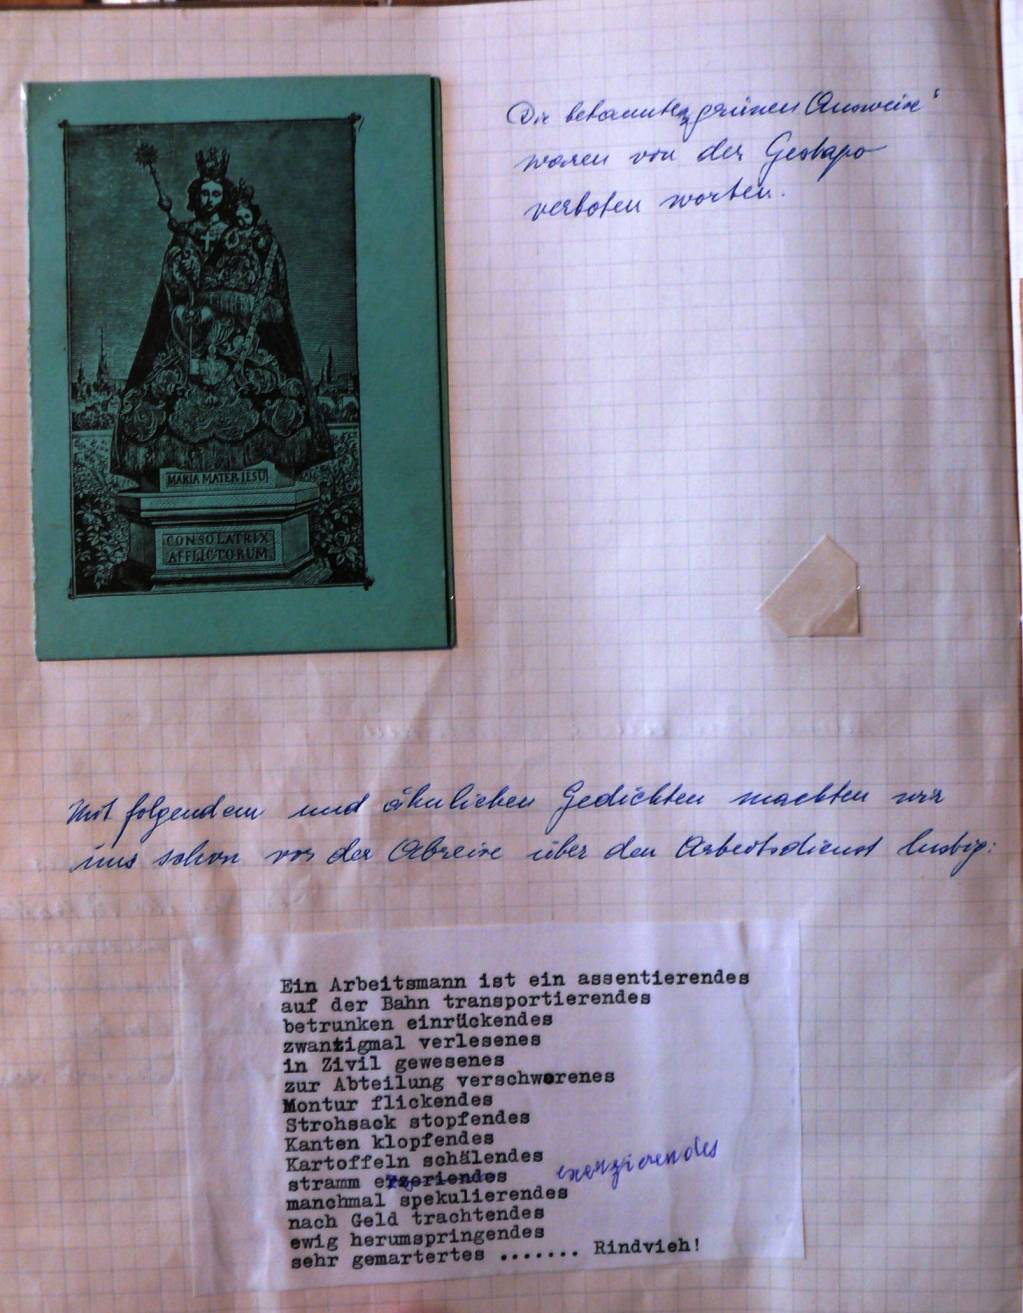 Die bekannten „grünen Ausweise“
waren von der Gestapo
verboten worten.
MARIA MATER JESU
CONSOLATRIX
AFFLICTORUM
Mit folgendem und ähnlichen Gedichten machten wir
uns schon vor der Abreise über den Arbeitsdienst lustig:
Ein Arbeitsmann ist ein assentierendes
auf der Bahn transportierendes
betrunken einrückendes
zwanzigmal verlesenes
in Zivil gewesenes
zur Abteilung verschworenes
Montur flickendes
Strohsack stopfendes
Kanten klopfendes
Kartoffeln schälendes
stramm exerzierendes
manchmal spekulierendes
nach Geld trachtendes
ewig herumspringendes
sehr gemartertes ....... Rindvieh!